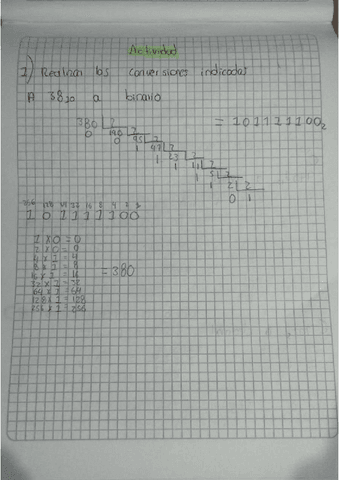 Actividad
1) Realizar las conversiones indicadas
A 380 a binario
380 2 = 101111100₂
0 190 2
0 95 2
1 47 2
1 23 2
1 11 2
1 5 2
1 2 2
0 1
256 128 64 32 16 8 4 2 1
1 0 1 1 1 1 1 0 0
1 x 0 = 0
2 x 0 = 0
4 x 1 = 4
8 x 1 = 8
16 x 1 = 16
32 x 1 = 32 = 380
64 x 1 = 64
128 x 1 = 128
256 x 1 = 256